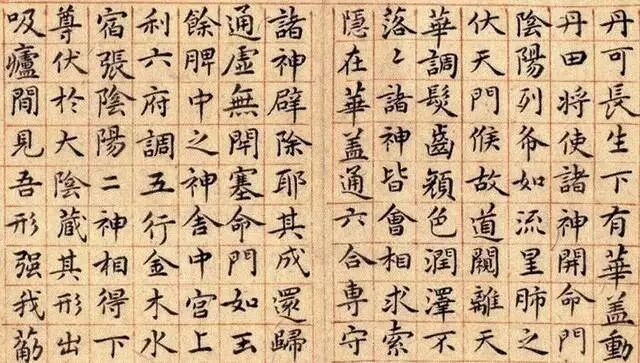 丹可長生下有華盖動
丹田將使諸神開命門
陰陽列布如流星肺之
伏天門候故道闕離天
華調髮齒顏色潤澤不
落〻諸神皆會相求索
隱在華盖通六合專守
諸神辟除耶其成還歸
通虛無閉塞命門如玉
餘脾中之神舍中宮上
利六府調五行金木水
宿張陰陽二神相得下
尊伏於大陰藏其形出
吸廬間見吾形强我筋